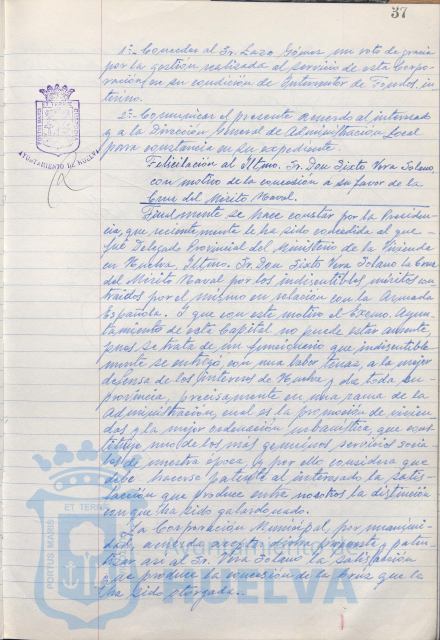 37
1º- Conceder al Sr. Lazo Gómez un voto de gracia
por la gestión realizada al servicio de esta Corpo-
ración en su condición de Interventor de Fondos in-
terino.
2º- Comunicar el presente acuerdo al interesado
y a la Dirección General de Administración Local
para constancia en su expediente.
Felicitación al Iltmo. Sr. Don Sixto Vera Solano,
con motivo de la concesión a su favor de la
Cruz del Mérito Naval.
Finalmente se hace constar por la Presiden-
cia, que recientemente le ha sido concedida al que
fué Delegado Provincial del Ministerio de la Vivienda
en Huelva, Iltmo. Sr. Don Sixto Vera Solano la Cruz
del Mérito Naval por los indiscutibles méritos con-
traidos por el mismo en relación con la Armada
Española. Y que con este motivo el Excmo. Ayun-
tamiento de esta Capital no puede estar ausente
pues se trata de un funcionario que indiscutible-
mente se entregó con una labor tenaz, a la mejor
defensa de los intereses de Huelva y de toda su
provincia, precisamente en una rama de la
Administración, cual es la promoción de vivien-
das y la mejor ordenación urbanística, que cons-
tituye uno de los más genuinos servicios socia-
les de nuestra época, y por ello considera que
debe hacerse patente al interesado la satis-
facción que produce entre nosotros la distinción
con que ha sido galardonado.
La Corporación Municipal, por unanimi-
dad, acuerda aceptar dicha propuesta y paten-
tizar así al Sr. Vera Solano la satisfacción
que produce la concesión de la Cruz que le
ha sido otorgada.
AYUNTAMIENTO DE HUELVA
PORTUS MARIS
ET TERRAE
Ayuntamiento de
HUELVA